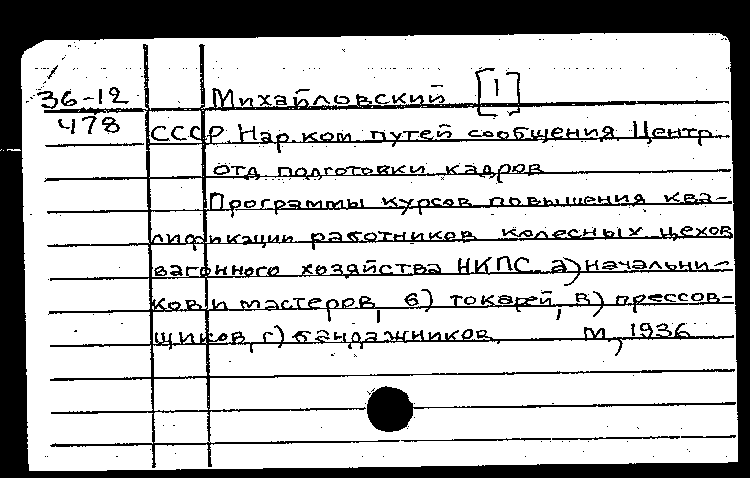 36-12 Михайловский [1]
478 СССР. Нар. ком. путей сообщения Центр.
отд. подготовки кадров
Программы курсов повышения ква-
лификации работников колесных цехов
вагонного хозяйства НКПС. а) начальни-
ков и мастеров, б) токарей, в) прессов-
щиков, г) бандажников. М., 1936